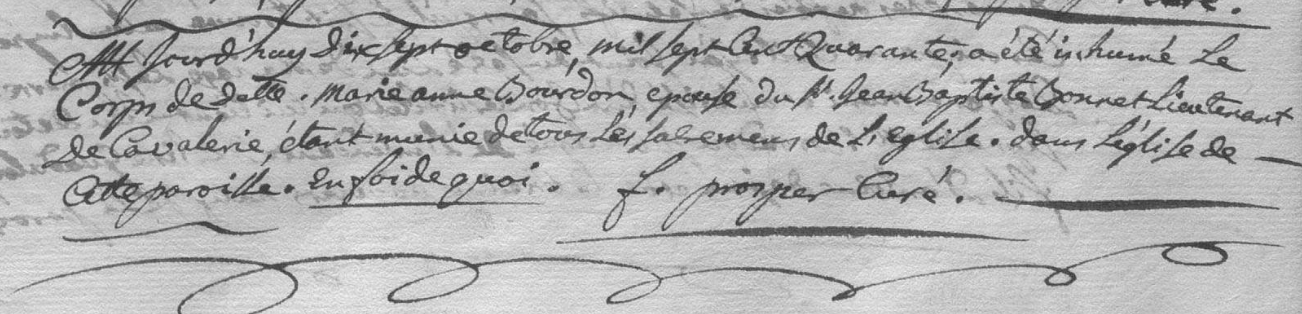 Aujourd'huy dix sept octobre, mil sept Cent Quarante, a été inhumé Le
Corps de delle. Marie anne Bourdon, epouse du Sr. Jean Baptiste Bonnet Lieutenant
de Cavalerie, étant munie de tous Les sacremens de L'eglise. dans L'église de
Cette paroisse. En foi de quoi. f. prosper Curé.